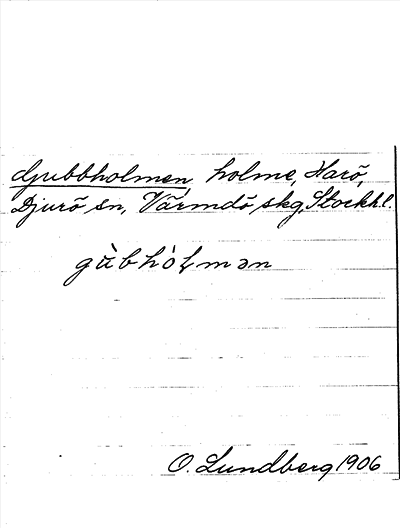 Gubbholmen, holme, Harö,
Djurö sn, Värmdö skg, Stockh.l.
gùbhòḷmən
O. Lundberg 1906